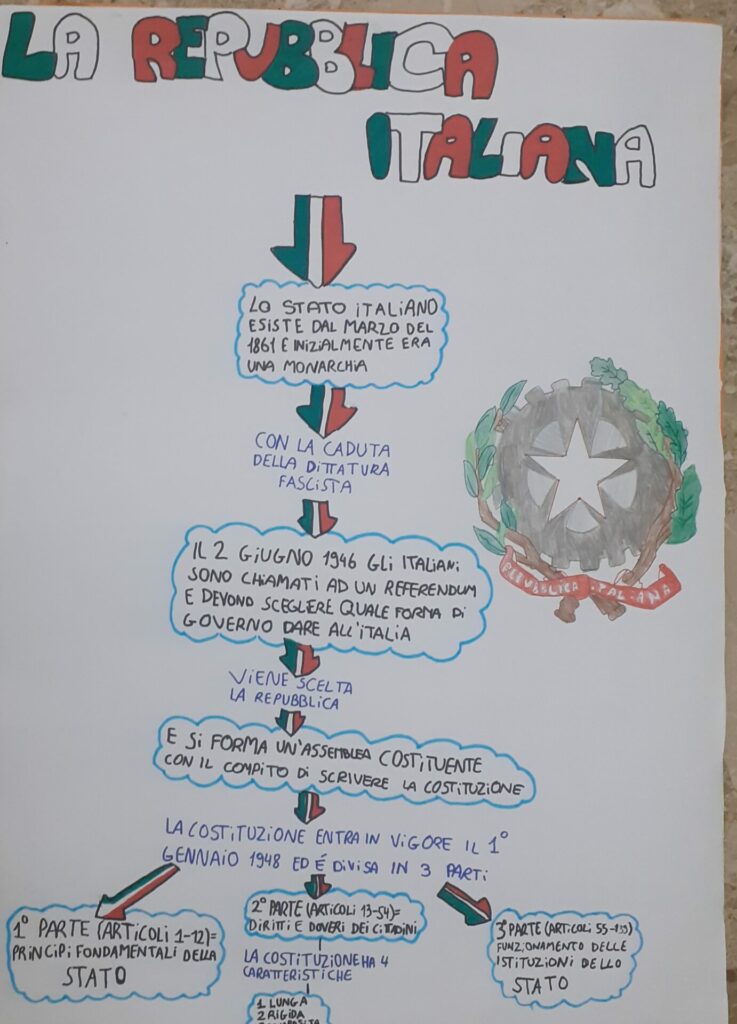 LA REPUBBLICA
ITALIANA
LO STATO ITALIANO
ESISTE DAL MARZO DEL
1861 E INIZIALMENTE ERA
UNA MONARCHIA
CON LA CADUTA
DELLA DITTATURA
FASCISTA
IL 2 GIUGNO 1946 GLI ITALIANI
SONO CHIAMATI AD UN REFERENDUM
E DEVONO SCEGLIERE QUALE FORMA DI
GOVERNO DARE ALL'ITALIA
REPUBBLICA
VIENE SCELTA
LA REPUBBLICA
E SI FORMA UN'ASSEMBLEA COSTITUENTE
CON IL COMPITO DI SCRIVERE LA COSTITUZIONE
LA COSTITUZIONE ENTRA IN VIGORE IL 1°
GENNAIO 1948 ED É DIVISA IN 3 PARTI
1° PARTE (ARTICOLI 1-12)=
PRINCIPI FONDAMENTALI DELLA
STATO
2° PARTE (ARTICOLI 13-54)=
DIRITTI E DOVERI DEI CITTADINI
LA COSTITUZIONE HA 4
CARATTERISTICHE
1 LUNGA
2 RIGIDA
3° PARTE (ARTICOLI 55-139)
FUNZIONAMENTO DELLE
ISTITUZIONI DELLO
STATO